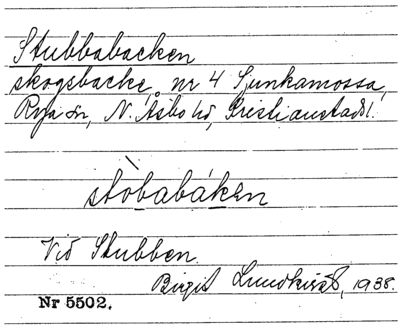 Stubbabacken
skogsbacke, nr 4 Sjunkamossa,
Rya sn, N. Åsbo hd, Kristianstads l.
stòbabáken
Vid Stubben.
Birgit 1938.
Nr 5502.